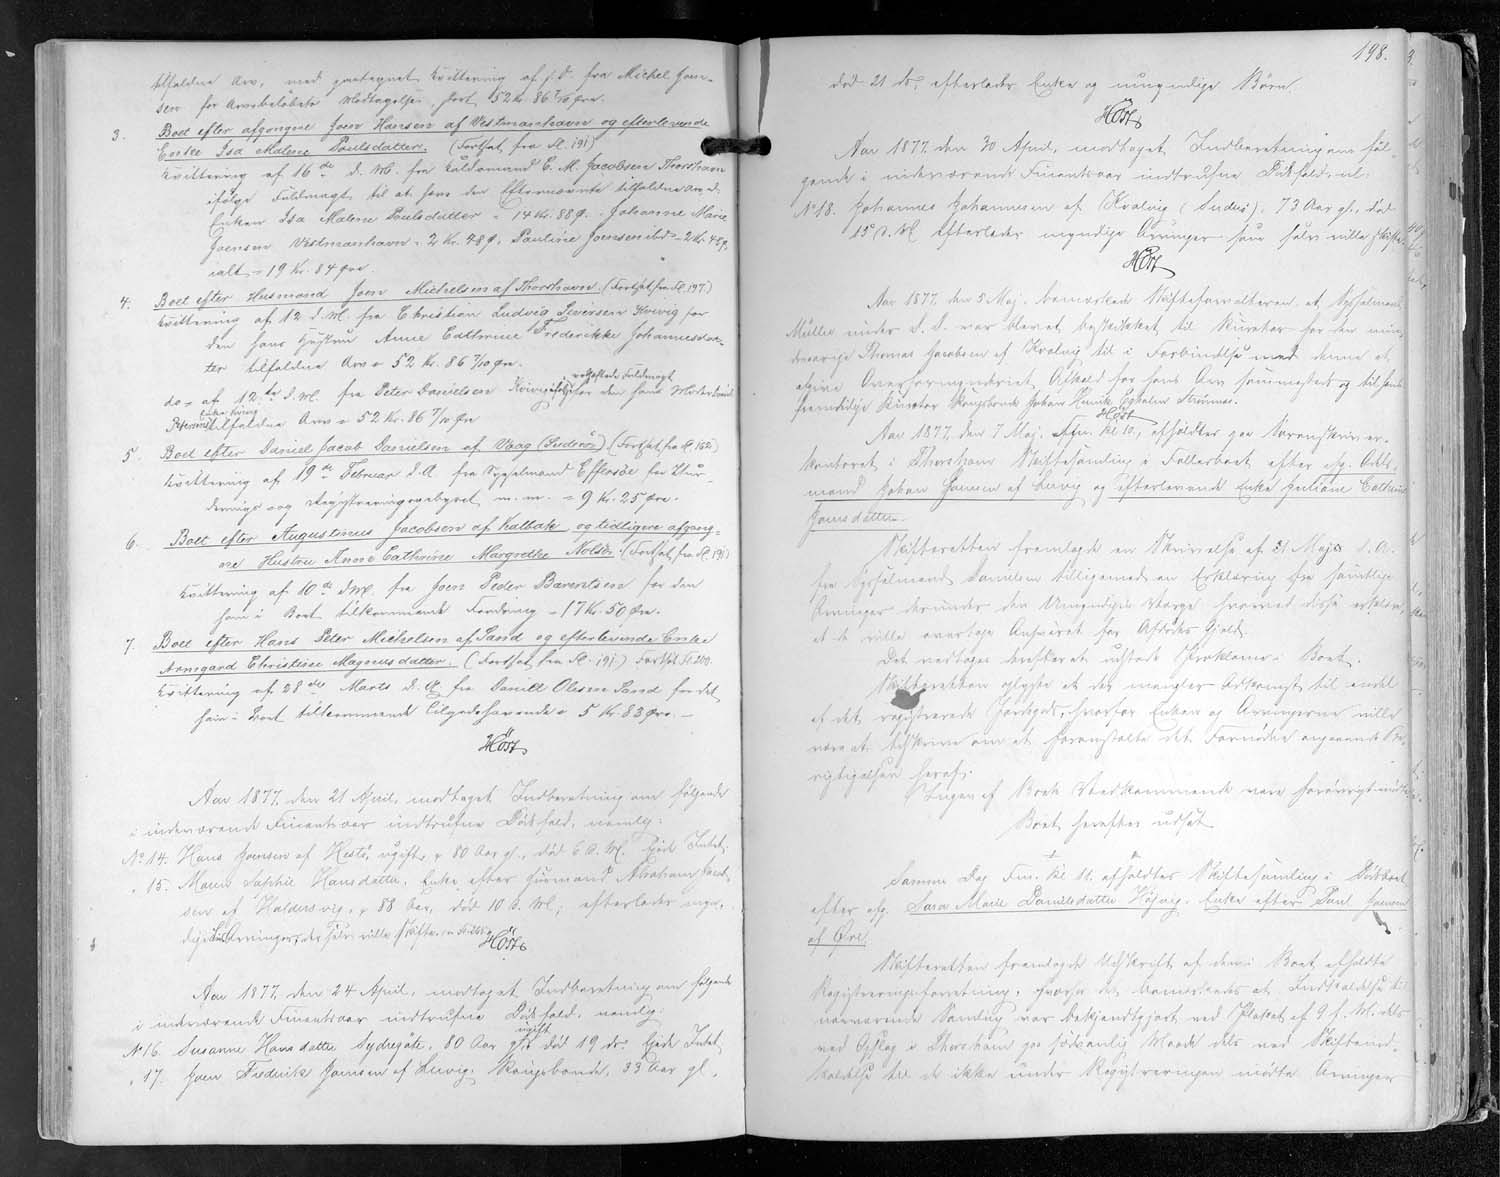 tilfaldne Arv, med paategnet Kvittering af s. D. fra Michel Joen-
sen for Arvebeløbets Modtagelse, stort 52 Kr. 86 7/10 Øre.
3. Boet efter afgangne Joen Hansen af Vestmanhavn og efterlevende
Enke Isa Malene Poulsdatter. (Fortsat fra Fl. 191)
Kvittering af 16de d. M. fra Guldsmed C. M. Jacobsen Thorshavn
ifølge Fuldmagt til at hæve den Efternævnte tilfaldne Arv:
Enken Isa Malene Poulsdatter = 14 Kr. 88 Ø. Johanne Marie
Joensen Vestmanhavn = 2 Kr. 48 Ø, Pauline Joensen ibd = 2 Kr. 48 Ø.
ialt = 19 Kr. 84 Øre.
4. Boet efter Husmand Joen Michelsen af Thorshavn. (Fortsat fra Fl. 197.)
Kvittering af 12 d. M. fra Christian Ludvig Sivertsen Kvivig for
den hans Hustru Anne Cathrine Frederikke Johannesdat-
ter tilfaldne Arv = 52 Kr. 86 7/10 Øre.
vedhæftede Fuldmagt
do = af 12te d. M. fra Peter Danielsen Kvivig ifølge for den hans Moder
Enke Kvivig
tilfaldne Arv = 52 Kr. 86 7/10 Øre
5. Boet efter Daniel Jacob Danielsen af Vaag (Suderø) (Fortsat fra Fl. 152)
Kvittering af 19de Februar d. A. fra Sysselmand Effersøe for Vur-
derings og Registreringsgebyret m. m. = 9 Kr. 25 Øre.
6. Boet efter Augustinus Jacobsen af Kalbak og tidligere afgang-
ne Hustru Anne Cathrine Margrethe Nolsøe. (Fortsat fra Fl. 191)
Kvittering af 10de d. M. fra Joen Peder Bærentsen for den
ham i Boet tilkommende Fordring = 17 Kr. 50 Øre.
7. Boet efter Hans Peter Michelsen af Sand og efterlevende Enke
Armgard Christine Magnusdatter. (Fortsat fra Fl. 191.) Fortsat Fl. 200.
Kvittering af 28de Marts d. A. fra Daniel Olesen Sand for det
ham i Boet tilkommende Tilgodehavende = 5 Kr. 83 Øre. —
Høst
Aar 1877, den 21 April, modtaget Indberetning om følgende
i indeværende Finantsaar indtrufne Dødsfald, nemlig:
No 14. Hans Joensen af Hestø, ugift, 80 Aar gl., død 6 d. M. Ejede Intet.
" 15. Maren Sophie Hansdatter, Enke efter Husmand Abraham Jacob-
sen af Haldersvig, 88 Aar, død 10 d. M.; efterlader myn-
dige Livsarvinger, der selv ville skifte
Høst
Aar 1877, den 24 April, modtaget Indberetning om følgende
i indeværende Finantsaar indtrufne Dødsfald, nemlig:
ugift
No 16. Susanne Hansdatter Sydregøte, 80 Aar gl., død 19 ds. Ejede Intet
" 17. Joen Frederik Joensen af Leervig, Kongsbonde, 33 Aar gl.,
198.
død 21 ds, efterlader Enke og umyndige Børn.
Høst
Aar 1877, den 30 April, modtaget Indberetning om føl-
gende i indeværende Finantsaar indtrufne Dødsfald, nl:
No 18. Johannes Johannesen af Kvalvig (Suderø), 73 Aar gl., død
15 d. M. Efterlader myndige Arvinger som selv ville skifte.
Høst
Aar 1877, den 5 Maj, bemærkede Skifteforvalteren at Sysselmand
Müller under D. D. var blevet beskikket til Kurator for den min-
dreaarige Thomas Jacobsen af Kvalvig til i Forbindelse med denne at
afgive Overformynderiet Afkald for hans Arv sammesteds og til hans
fremtidige Kurator Kongsbonde Johan Henrik Egholm Strømnæs.
Høst
Aar 1877, den 7 Maj, Fm. Kl 10, afholdtes paa Sorenskriver-
kontoret i Thorshavn Skiftesamling i Fællesboet efter afg. Odels-
mand Johan Joensen af Leervig og efterlevende Enke Juliane Cathrine
Joensdatter.
Skifteretten fremlagde en Skrivelse af 31 Maj d. A.
fra Sysselmand Danielsen tilligemed en Erklæring fra samtlige
Arvinger derunder den Umyndiges Værge hvorved disse erklære,
at de ville overtage Ansvaret for Afdødes Gjæld.
Det vedtoges derefter at udstede Proklama i Boet.
Skifteretten oplyste at der mangler Adkomst til endel
af det registrerede Jordegods, hvorfor Enken og Arvingerne ville
være at tilskrive om at foranstalte det Fornødne angaaende Be-
rigtigelsen heraf.
Ingen af Boets Vedkommende vare forøvrigt mødte.
Boet herefter udsat
Samme Dag Fm. Kl 11 afholdtes Skiftesamling i Dødsboet
efter afg. Sara Marie Danielsdatter Højvig, Enke efter Poul Joensen
af Øre.
Skifteretten fremlagde Udskrift af den i Boet afholdte
Registreringsforretning, hvorfra det bemærkedes at Indkaldelse til
nærværende Samling var bekjendtgjort ved Plakat af 9 f. M. dels
ved Opslag i Thorshavn paa sædvanlig Maade dels ved Skiftеind-
kaldelse til de ikke under Registreringen mødte Arvinger